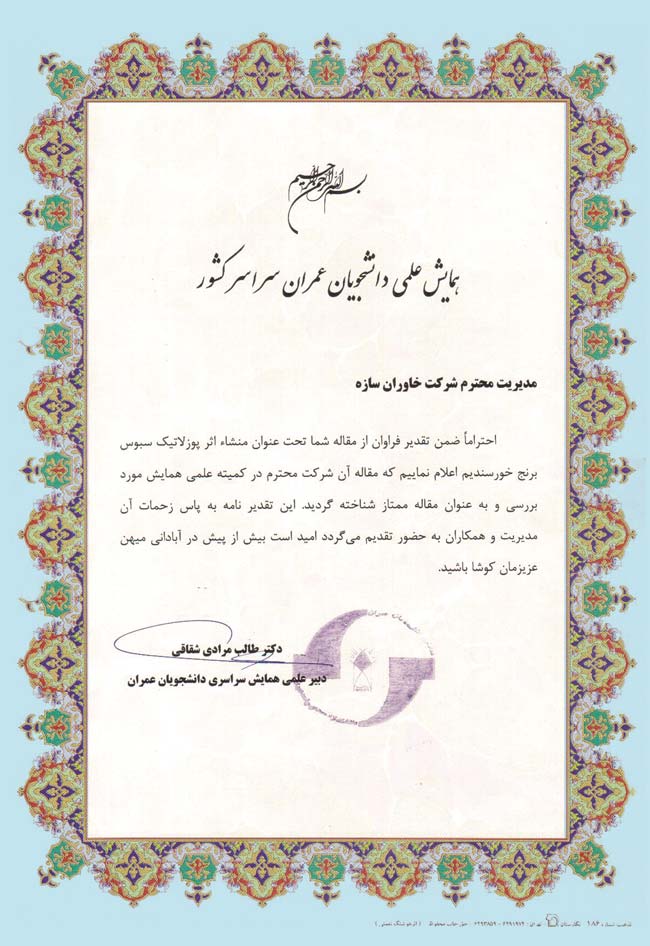 بسم الله الرحمن الرحیم
همایش علمی دانشجویان عمران سراسر کشور
مدیریت محترم شرکت خاوران سازه
احتراماً ضمن تقدیر فراوان از مقاله شما تحت عنوان منشاء اثر پوزلاتیک سبوس
برنج خورسندیم اعلام نماییم که مقاله آن شرکت محترم در کمیته علمی همایش مورد
بررسی و به عنوان مقاله ممتاز شناخته گردید. این تقدیر نامه به پاس زحمات آن
مدیریت و همکاران به حضور تقدیم می‌گردد امید است بیش از پیش در آبادانی میهن
عزیزمان کوشا باشید.
دکتر طالب مرادی شقاقی
دبیر علمی همایش سراسری دانشجویان عمران
۱۸۶ نگارستان تهران: ۶۴۹۱۹۷۴ - ۶۴۹۳۸۵۹ حق چاپ محفوظ